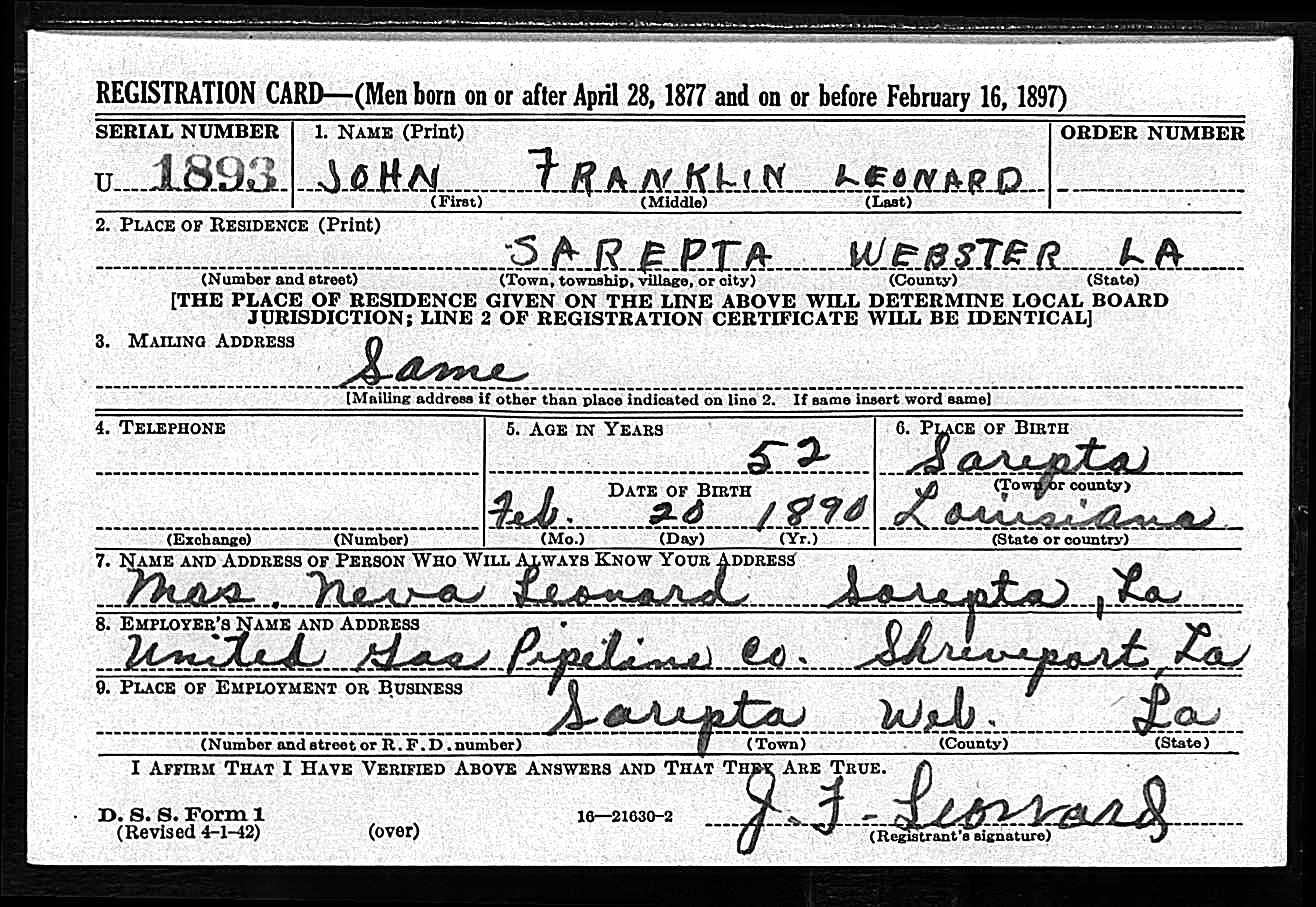 REGISTRATION CARD—(Men born on or after April 28, 1877 and on or before February 16, 1897)
SERIAL NUMBER 1. NAME (Print) ORDER NUMBER
U 1893 JOHN FRANKLIN LEONARD
(First) (Middle) (Last)
2. PLACE OF RESIDENCE (Print)
SAREPTA WEBSTER LA
(Number and street) (Town, township, village, or city) (County) (State)
[THE PLACE OF RESIDENCE GIVEN ON THE LINE ABOVE WILL DETERMINE LOCAL BOARD
JURISDICTION; LINE 2 OF REGISTRATION CERTIFICATE WILL BE IDENTICAL]
3. MAILING ADDRESS
Same
[Mailing address if other than place indicated on line 2. If same insert word same]
4. TELEPHONE 5. AGE IN YEARS 6. PLACE OF BIRTH
52 Sarepta
DATE OF BIRTH (Town or county)
Feb. 20 1890 Louisiana
(Exchange) (Number) (Mo.) (Day) (Yr.) (State or country)
7. NAME AND ADDRESS OF PERSON WHO WILL ALWAYS KNOW YOUR ADDRESS
Mrs. Neva Leonard Sarepta, La
8. EMPLOYER'S NAME AND ADDRESS
United Gas Pipeline Co. Shreveport, La
9. PLACE OF EMPLOYMENT OR BUSINESS
Sarepta Web. La
(Number and street or R. F. D. number) (Town) (County) (State)
I AFFIRM THAT I HAVE VERIFIED ABOVE ANSWERS AND THAT THEY ARE TRUE.
D. S. S. Form 1
(Revised 4-1-42) (over) 16—21630-2 J. F. Leonard
(Registrant's signature)